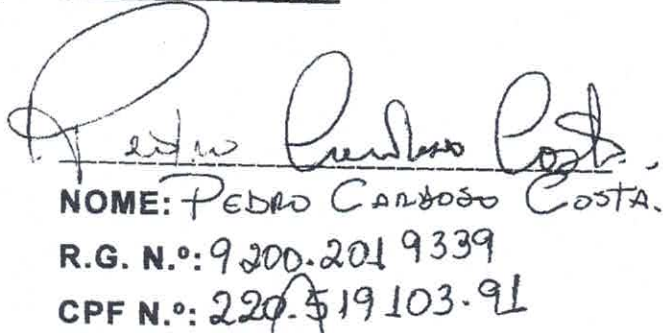 Pedro Cardoso Costa.
NOME: PEDRO CARDOSO COSTA.
R.G. N.º: 9200.201 9339
CPF N.º: 220.519103-91